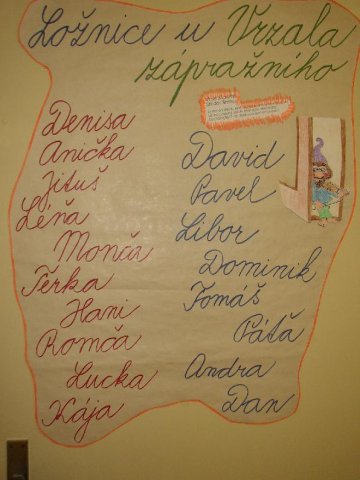 Ložnice u Vrzala
zápražního
Denisa
Anička
Jituš
Léňa
Monča
Terka
Hani
Romča
Lucka
Kája
David
Pavel
Libor
Dominik
Tomáš
Páťa
Andra
Dan